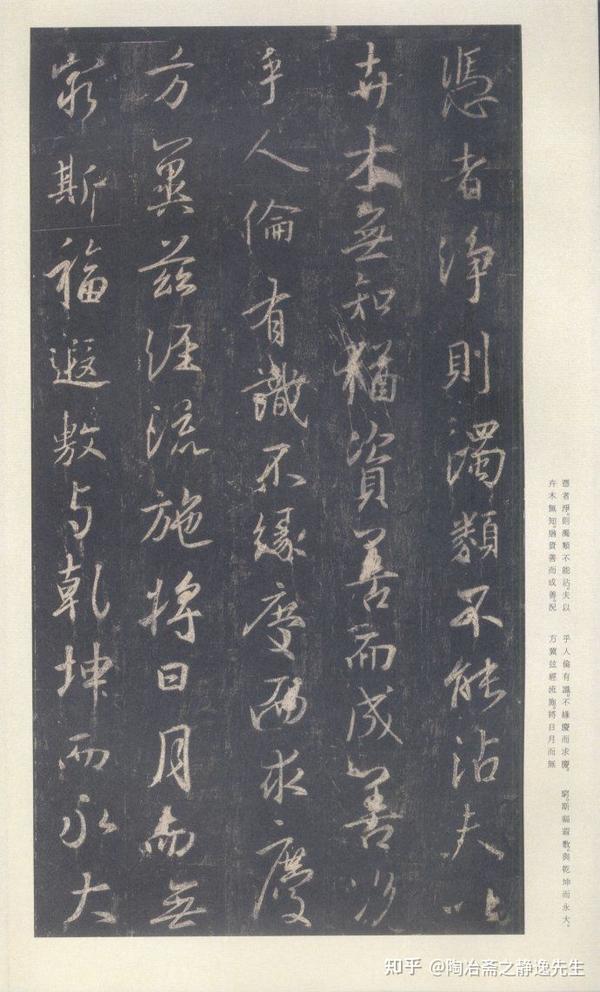 憑者淨則濁類不能沾夫以
卉木無知猶資善而成善況
乎人倫有識不緣慶而求慶
方冀茲經流施將日月而無
窮斯福遐敷與乾坤而永大
憑者淨。則濁類不能沾。夫以
卉木無知。猶資善而成善。況
乎人倫有識。不緣慶而求慶。
方冀茲經流施。將日月而無
窮。斯福遐敷。與乾坤而永大。
知乎 @陶冶斋之静逸先生